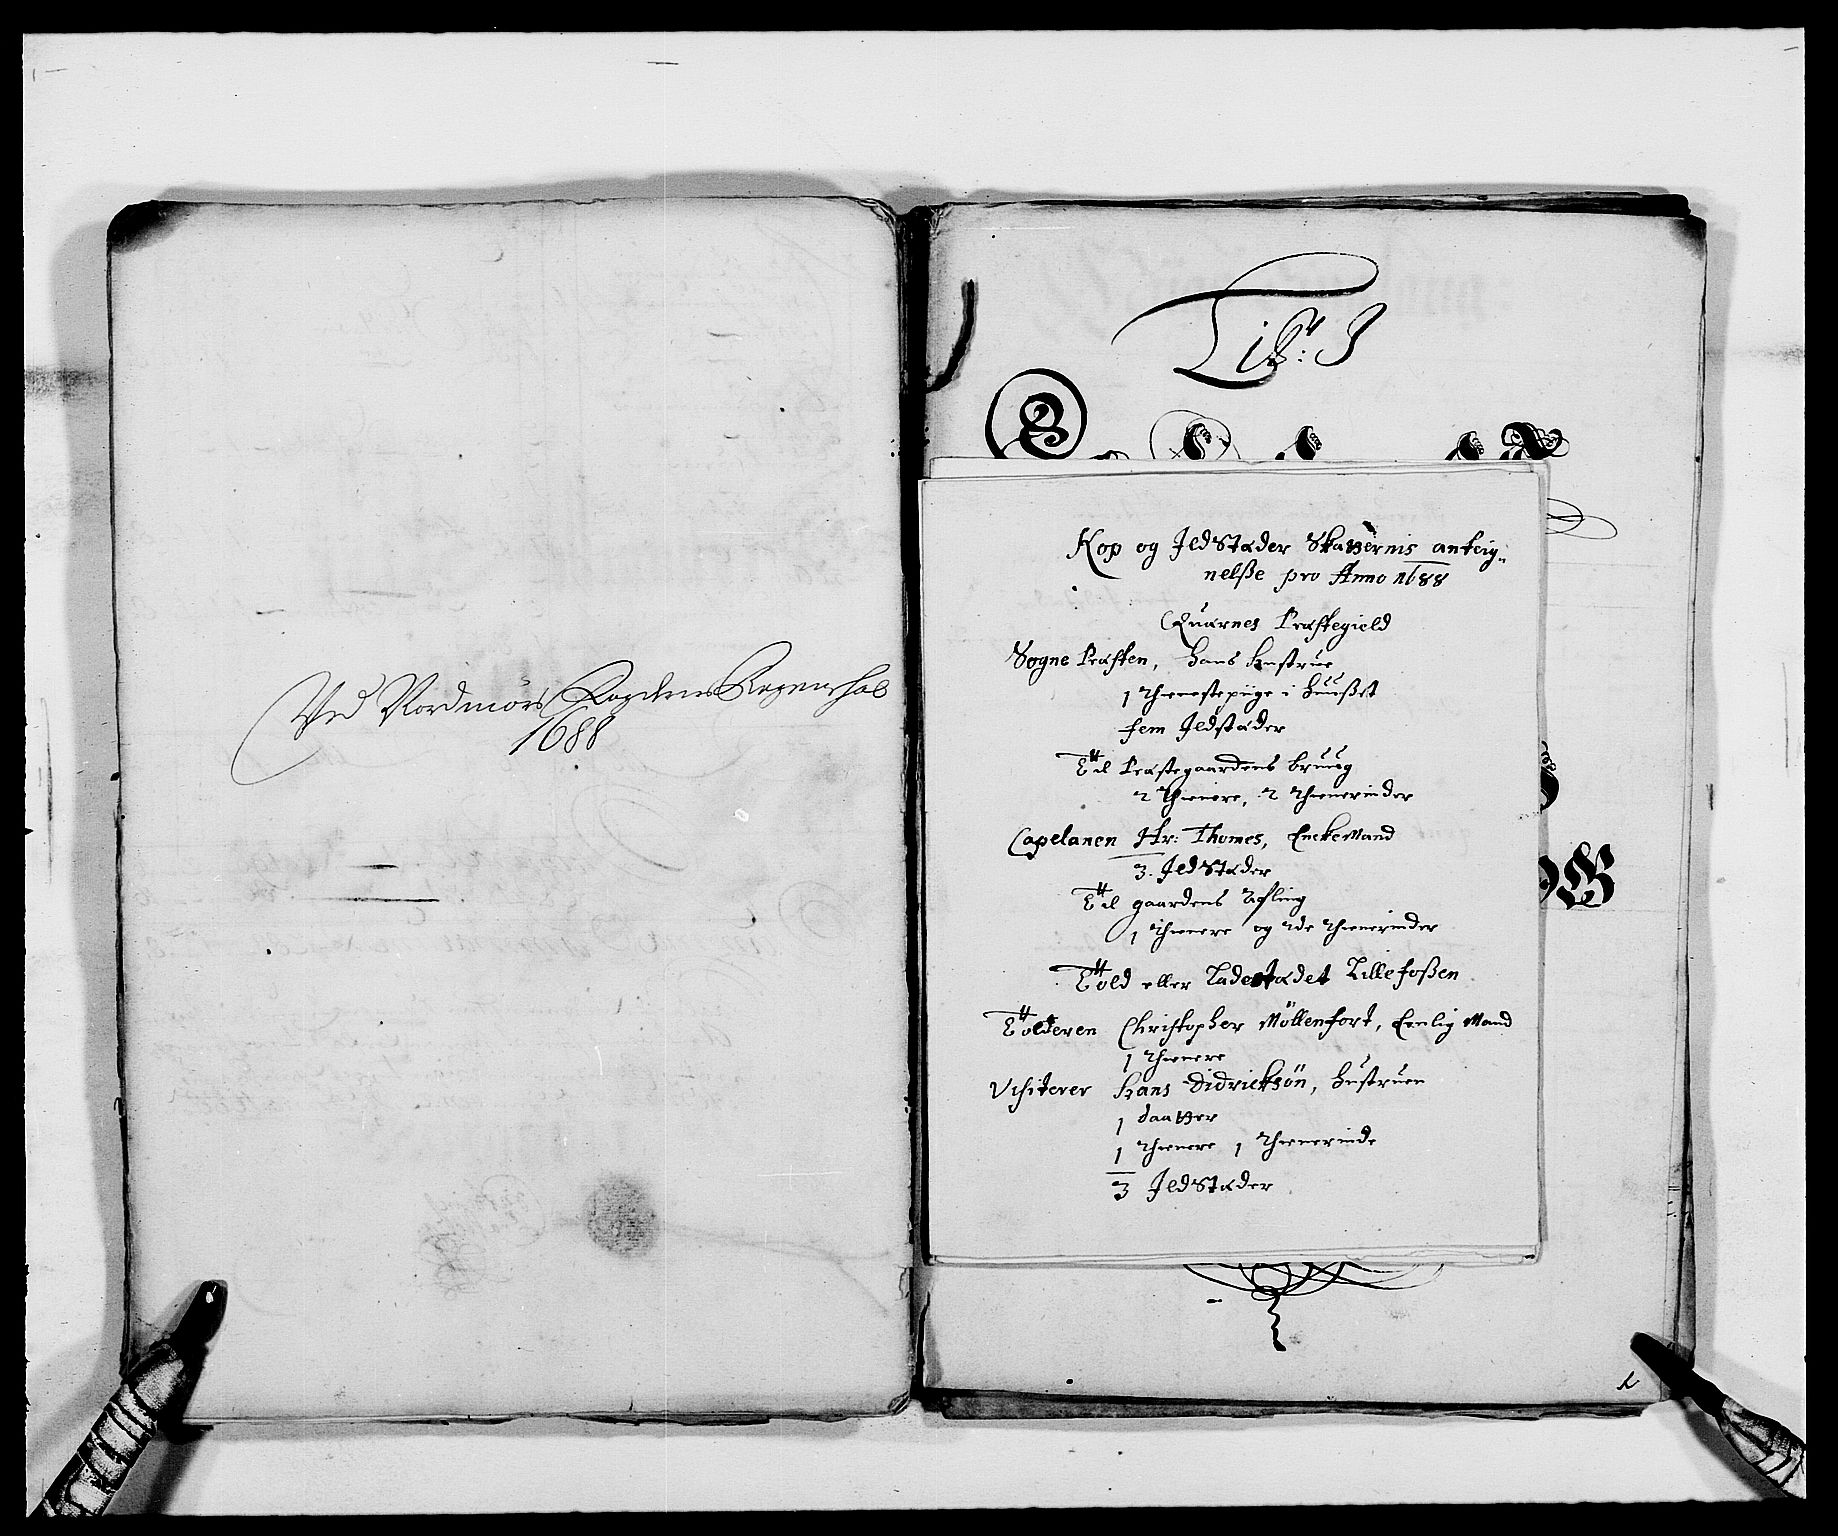 Ved Nordmörs Fogderies Regenskab
1688
Lit: J
Kop og Jldstæder Skatternis anteig-
nelße pro Anno 1688
Quærnes Præstegield
Sogne Præsten, hans hustrue
1 thienestepiige i huußet
fem Jldstæder
Til Præstegaardens bruug
2 thienere, 2 thienerinder
Capelanen Hr: Thomes, EnckeMand
3. Jldstæder
Til gaardens Afling
1 thienere og 2de thienerinder
Told eller Ladestædet Lillefoßen
Tolderen Christopher Möllenfort, Eenlig Mand
1 thienere
Visiterer Hans Didricksön, hustruen
1 daatter
1 thienere 1 thienerinde
3 Jldstæder
1